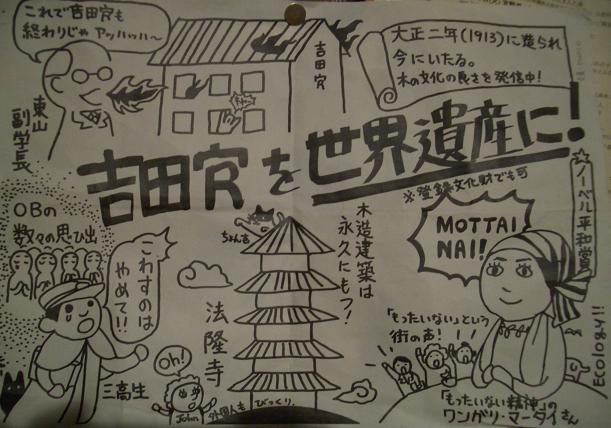 これで吉田寮も
終わりじゃ アッハッハ〜
東山
副学長
吉田寮
大正二年(1913)に造られ
今にいたる。
木の文化の良さを発信中!
吉田寮を世界遺産に!
※登録文化財でも可
☆ノーベル平和賞
OBの
数々の思ひ出
こわすのは
やめて!!
三高生
ちょん吉
木造建築は
永久にもつ!
法隆寺
Oh!
John
外国人もびっくり
MOTTAI
NAI!
「もったいない」という
街の声!
「もったいない精神」の
ワンガリ・マータイさん
Ecology!!